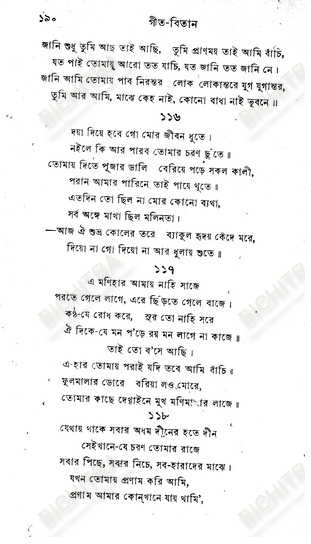 ১৯০ গীত-বিতান
জানি শুধু তুমি আছ তাই আছি, তুমি প্রাণময় তাই আমি বাঁচি,
যত পাই তোমায় আরো তত যাচি, যত জানি তত জানি নে।
জানি আমি তোমায় পাব নিরন্তর লোক লোকান্তরে যুগ যুগান্তর,
তুমি আর আমি, মাঝে কেহ নাই, কোনো বাধা নাই ভুবনে॥
১১৬
দয়া দিয়ে হবে গো মোর জীবন ধুতে।
নইলে কি আর পারব তোমার চরণ ছুঁতে॥
তোমায় দিতে পূজার ডালি বেরিয়ে পড়ে সকল কালী,
পরান আমার পারিনে তাই পায়ে থুতে॥
এতদিন তো ছিল না মোর কোনো ব্যথা,
সর্ব অঙ্গে মাখা ছিল মলিনতা।
—আজ ঐ শুভ্র কোলের তরে ব্যাকুল হৃদয় কেঁদে মরে,
দিয়ো না গো দিয়ো না আর ধুলায় শুতে॥
১১৭
এ মণিহার আমায় নাহি সাজে
পরতে গেলে লাগে, এরে ছিঁড়তে গেলে বাজে।
কণ্ঠ-যে রোধ করে, সুর তো নাহি সরে
ঐ দিকে-যে মন প'ড়ে রয় মন লাগে না কাজে॥
তাই তো ব'সে আছি।
এ-হার তোমায় পরাই যদি তবে আমি বাঁচি॥
ফুলমালার ডোরে বরিয়া লও মোরে,
তোমার কাছে দেখাইনে মুখ মণিমালার লাজে॥
১১৮
যেথায় থাকে সবার অধম দীনের হতে দীন
সেইখানে-যে চরণ তোমার রাজে
সবার পিছে, সবার নিচে, সব-হারাদের মাঝে।
যখন তোমায় প্রণাম করি আমি,
প্রণাম আমার কোন্‌খানে যায় থামি',
BICHITRA
BICHITRA
BICHITRA